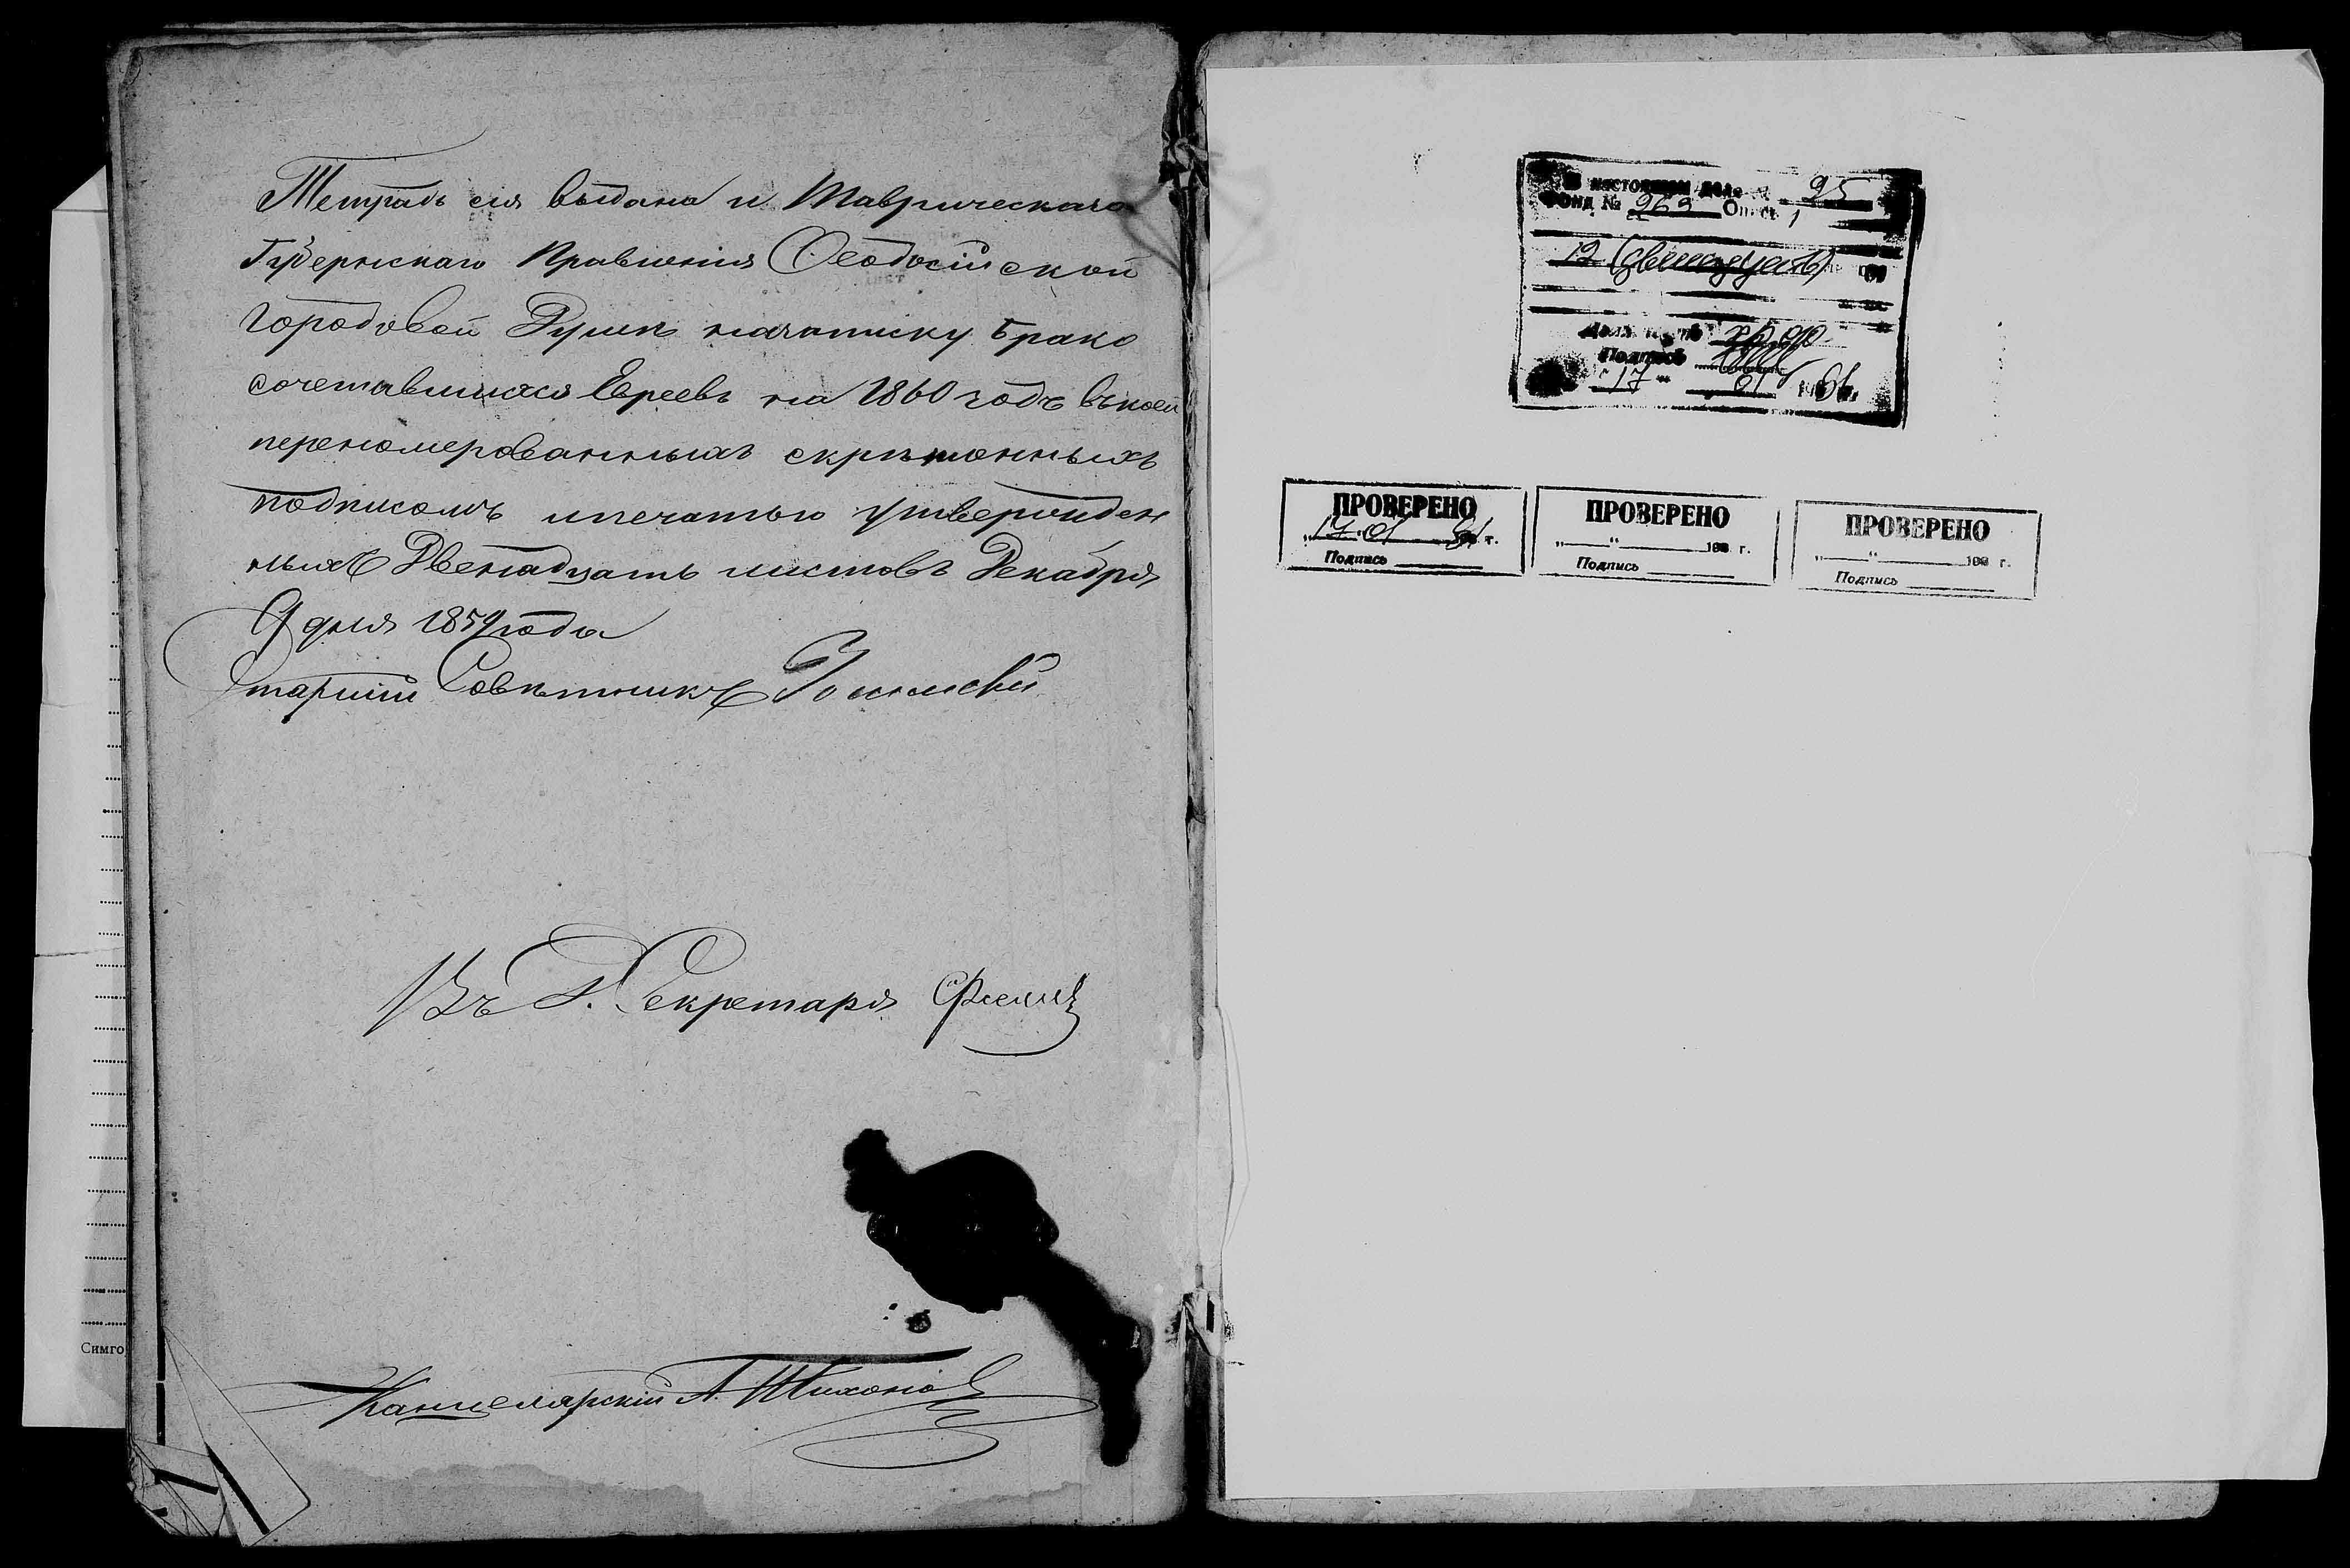 Тетрадь сія выдана и Таврическаго
Губернскаго Правленія Ѳеодосійской
городовой Думѣ назаписку брако
сочетавшихся Евреевъ на 1860 годъ въкоей
переномерованныхъ скрѣпленныхъ
подписомъ ипечатью утвержден
ныхъ Двенадцать листовъ Декабря
9 дня 1859 года
Старшій Совѣтникъ
Въ Д. Секретаря
Канцелярскій А. Тихонов
Симго
В настоящем деле 95
Фонд № 263 Опись 1
12 (двенадцать)
Должность хр. ф.
Подпись
17 " 01 1991.
ПРОВЕРЕНО
" 17 " 01 91 г.
Подпись
ПРОВЕРЕНО
" " 198 г.
Подпись
ПРОВЕРЕНО
" " 198 г.
Подпись